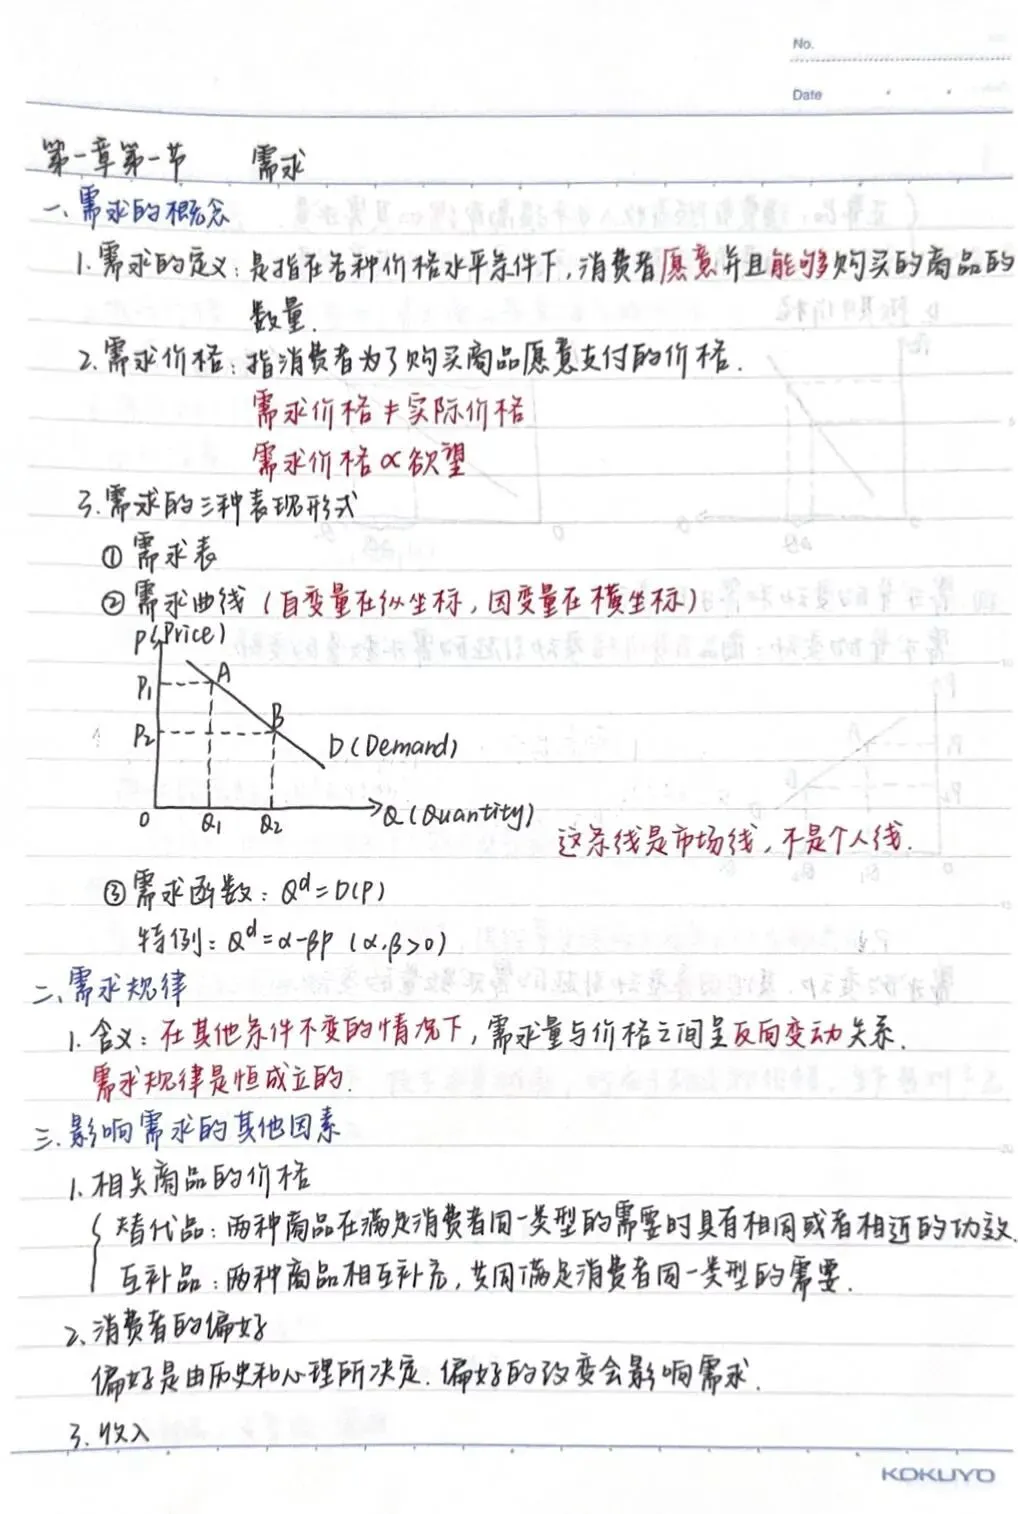 No.
Date
第一章第一节 需求
一、需求的概念
1. 需求的定义：是指在各种价格水平条件下，消费者愿意并且能够购买的商品的
数量.
2. 需求价格：指消费者为了购买商品愿意支付的价格.
需求价格≠实际价格
需求价格∝欲望
3. 需求的三种表现形式
① 需求表
② 需求曲线（自变量在纵坐标，因变量在横坐标）
P(Price)
P₁ A
P₂ B
D(Demand)
0 Q₁ Q₂ Q(Quantity)
这条线是市场线，不是个人线.
③ 需求函数：Qᵈ=D(P)
特例：Qᵈ=α-βP (α,β>0)
二、需求规律
1. 含义：在其他条件不变的情况下，需求量与价格之间呈反向变动关系.
需求规律是恒成立的.
三、影响需求的其他因素
1. 相关商品的价格
替代品：两种商品在满足消费者同一类型的需要时具有相同或者相近的功效.
互补品：两种商品相互补充，共同满足消费者同一类型的需要.
2. 消费者的偏好
偏好是由历史和心理所决定. 偏好的改变会影响需求.
3. 收入
KOKUYO